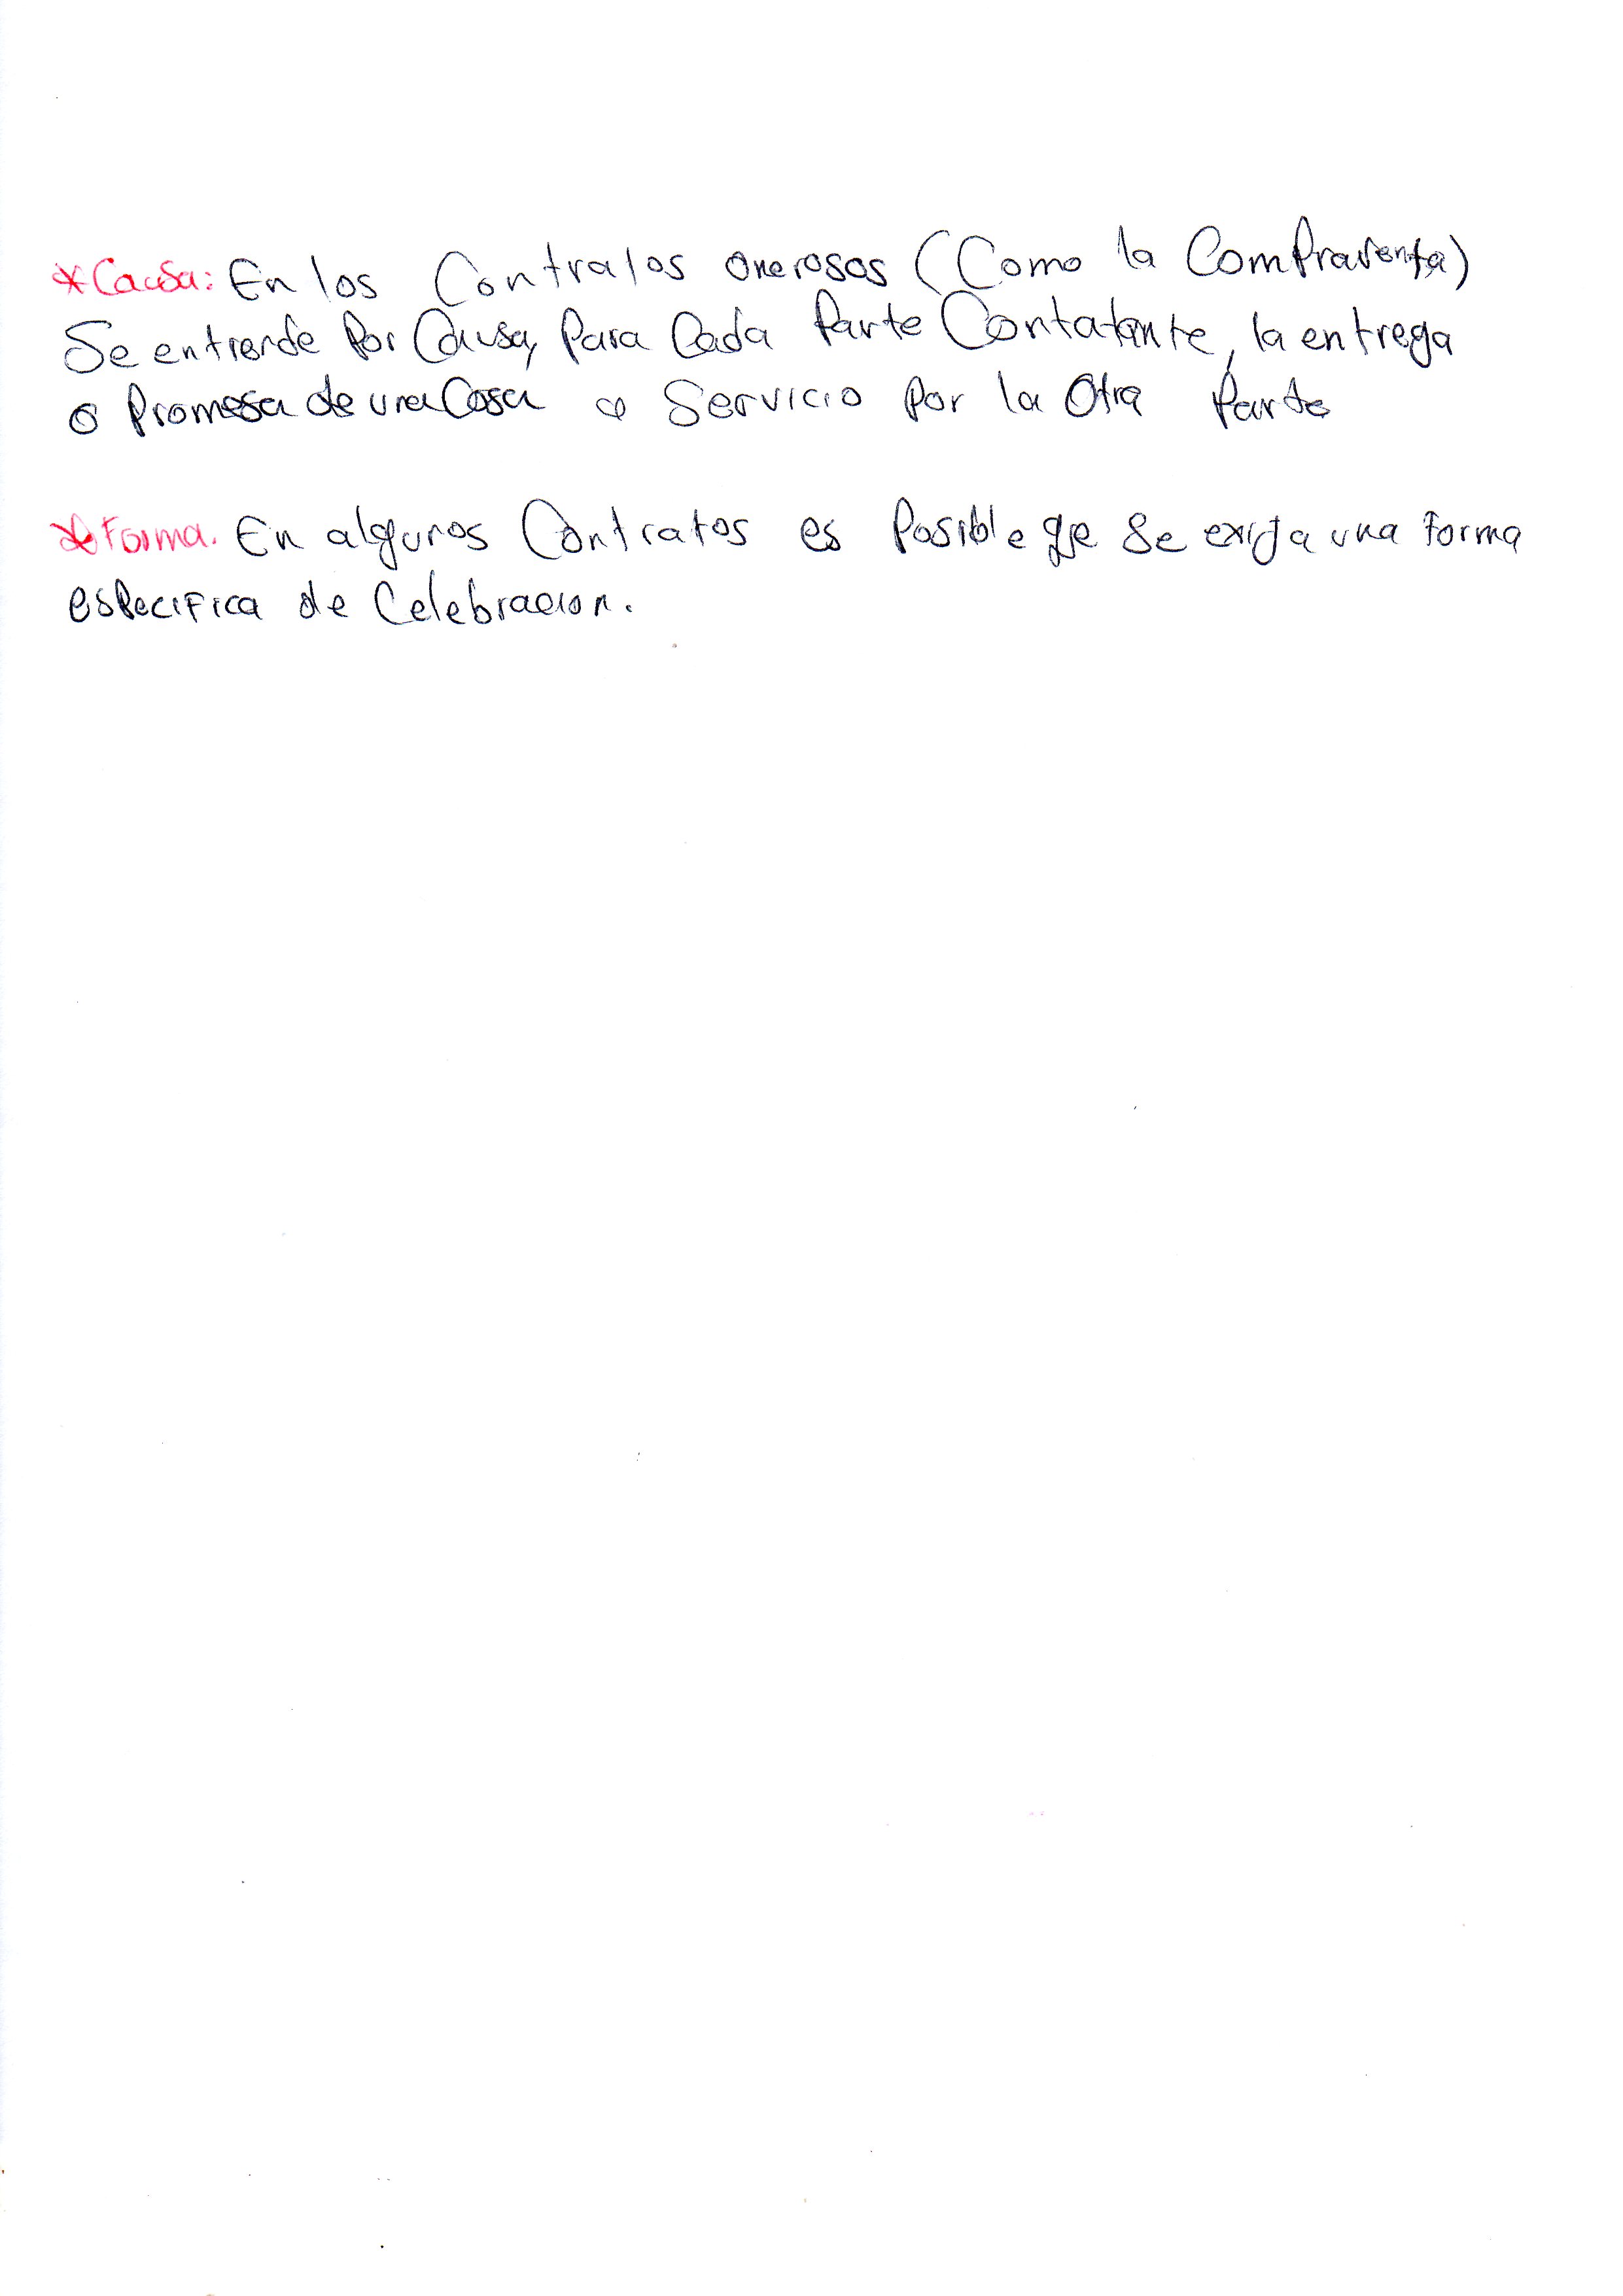 *Causa: En los Contratos onerosos (Como la Compraventa)
Se entiende Por Causa, Para Cada Parte Contatante, la entrega
o Promesa de una Cosa o Servicio por la Otra Parte
*Forma. En algunos Contratos es Posible que Se exija una forma
especifica de Celebracion.